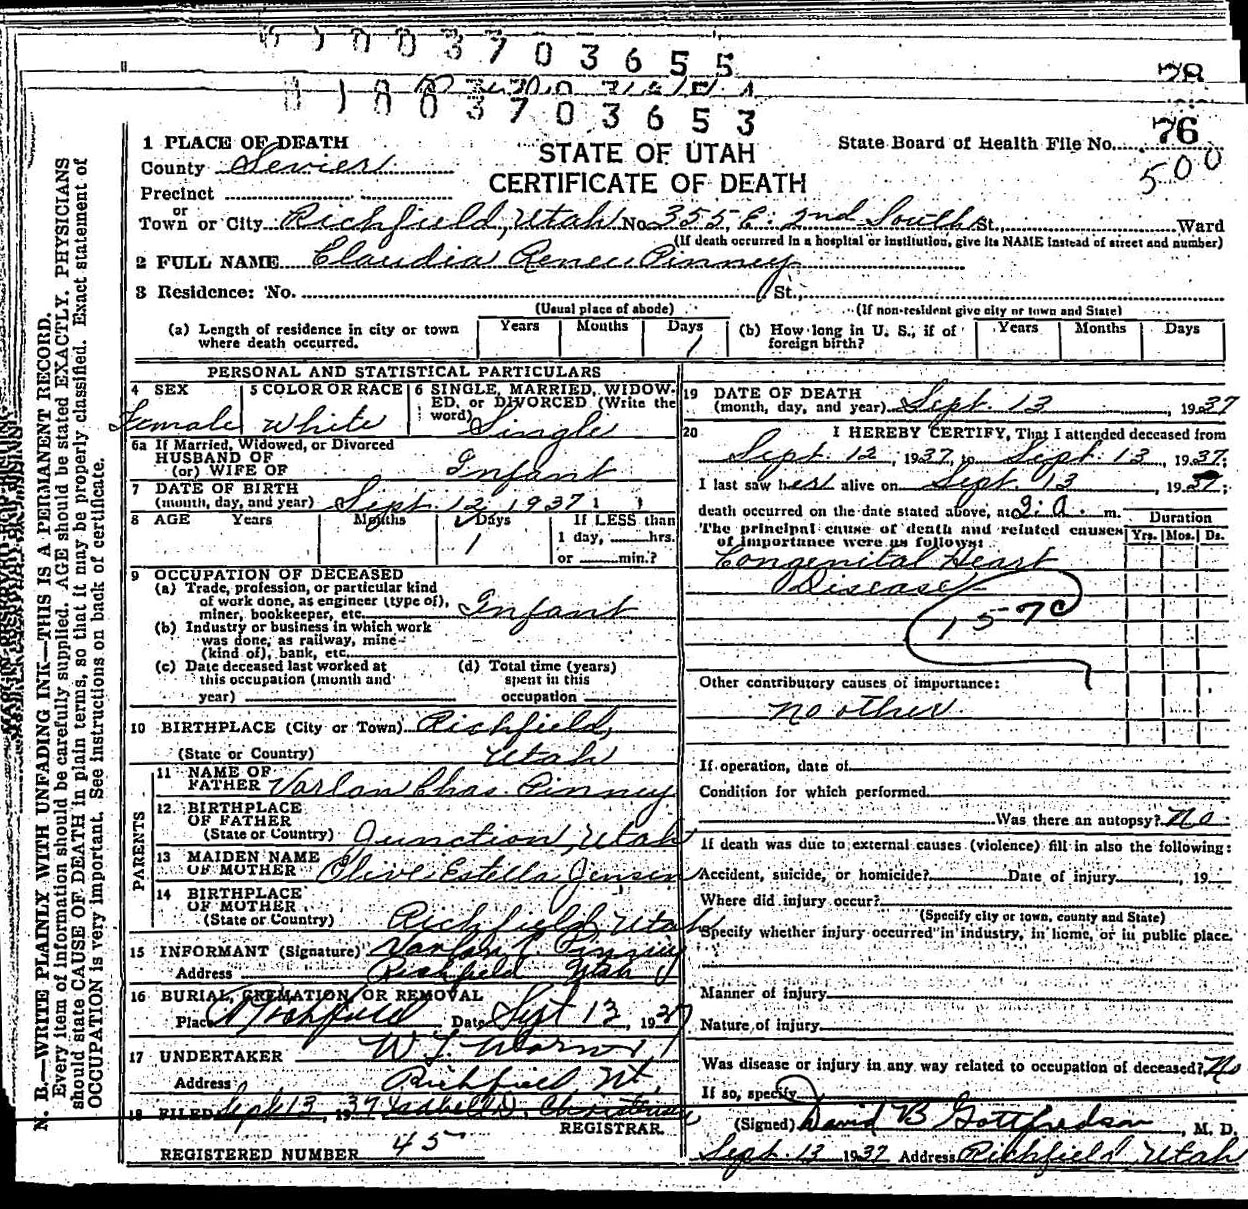 1 0 0 3 7 0 3 6 5 5
78
1 0 0 3 7 0 3 6 5 3
76
1 PLACE OF DEATH
STATE OF UTAH
State Board of Health File No.
500
County Sevier
CERTIFICATE OF DEATH
Precinct
or
Town or City Richfield, Utah No. 355 E. 2nd South St., Ward
(If death occurred in a hospital or institution, give its NAME instead of street and number)
2 FULL NAME Claudia Renee Pinney
3 Residence: No. St.,
(Usual place of abode) (If non-resident give city or town and State)
(a) Length of residence in city or town where death occurred. Years Months Days 1
(b) How long in U. S., if of foreign birth? Years Months Days
PERSONAL AND STATISTICAL PARTICULARS
4 SEX Female
5 COLOR OR RACE White
6 SINGLE, MARRIED, WIDOWED, or DIVORCED (Write the word) Single
6a If Married, Widowed, or Divorced
HUSBAND OF
(or) WIFE OF Infant
7 DATE OF BIRTH
(month, day, and year) Sept. 12, 1937
8 AGE Years Months Days 1 If LESS than
1 day, hrs.
or min.?
9 OCCUPATION OF DECEASED
(a) Trade, profession, or particular kind
of work done, as engineer (type of),
miner, bookkeeper, etc. Infant
(b) Industry or business in which work
was done, as railway, mine
(kind of), bank, etc.
(c) Date deceased last worked at
this occupation (month and
year)
(d) Total time (years)
spent in this
occupation
10 BIRTHPLACE (City or Town) Richfield,
(State or Country) Utah
PARENTS
11 NAME OF
FATHER Varlon Chas. Pinney
12 BIRTHPLACE
OF FATHER
(State or Country) Junction, Utah
13 MAIDEN NAME
OF MOTHER Olive Estella Jensen
14 BIRTHPLACE
OF MOTHER
(State or Country) Richfield, Utah
15 INFORMANT (Signature) Varlon C. Pinney
Address Richfield Utah
16 BURIAL, CREMATION, OR REMOVAL
Place Richfield Date Sept 13, 1937
17 UNDERTAKER W. L.
Address Richfield, Ut.
18 FILED Sept 13, 1937 Isabell D. Christensen
REGISTRAR
REGISTERED NUMBER 45
19 DATE OF DEATH
(month, day, and year) Sept. 13, 1937
20 I HEREBY CERTIFY, That I attended deceased from
Sept. 12, 1937, to Sept. 13, 1937;
I last saw her alive on Sept. 13, 1937;
death occurred on the date stated above, at 2:a. m.
The principal cause of death and related causes
of importance were as follows:
Duration
Yrs. Mos. Ds.
Congenital Heart
Disease
157c
Other contributory causes of importance:
no other
If operation, date of
Condition for which performed
Was there an autopsy? No
If death was due to external causes (violence) fill in also the following:
Accident, suicide, or homicide? Date of injury, 19
Where did injury occur?
(Specify city or town, county and State)
Specify whether injury occurred in industry, in home, or in public place.
Manner of injury
Nature of injury
Was disease or injury in any way related to occupation of deceased? No
If so, specify
(Signed) David B Gottfredson, M. D.
Sept. 13 1937 Address Richfield, Utah
N. B.—WRITE PLAINLY WITH UNFADING INK—THIS IS A PERMANENT RECORD.
Every item of information should be carefully supplied. AGE should be stated EXACTLY. PHYSICIANS
should state CAUSE OF DEATH in plain terms, so that it may be properly classified. Exact statement of
OCCUPATION is very important. See instructions on back of certificate.